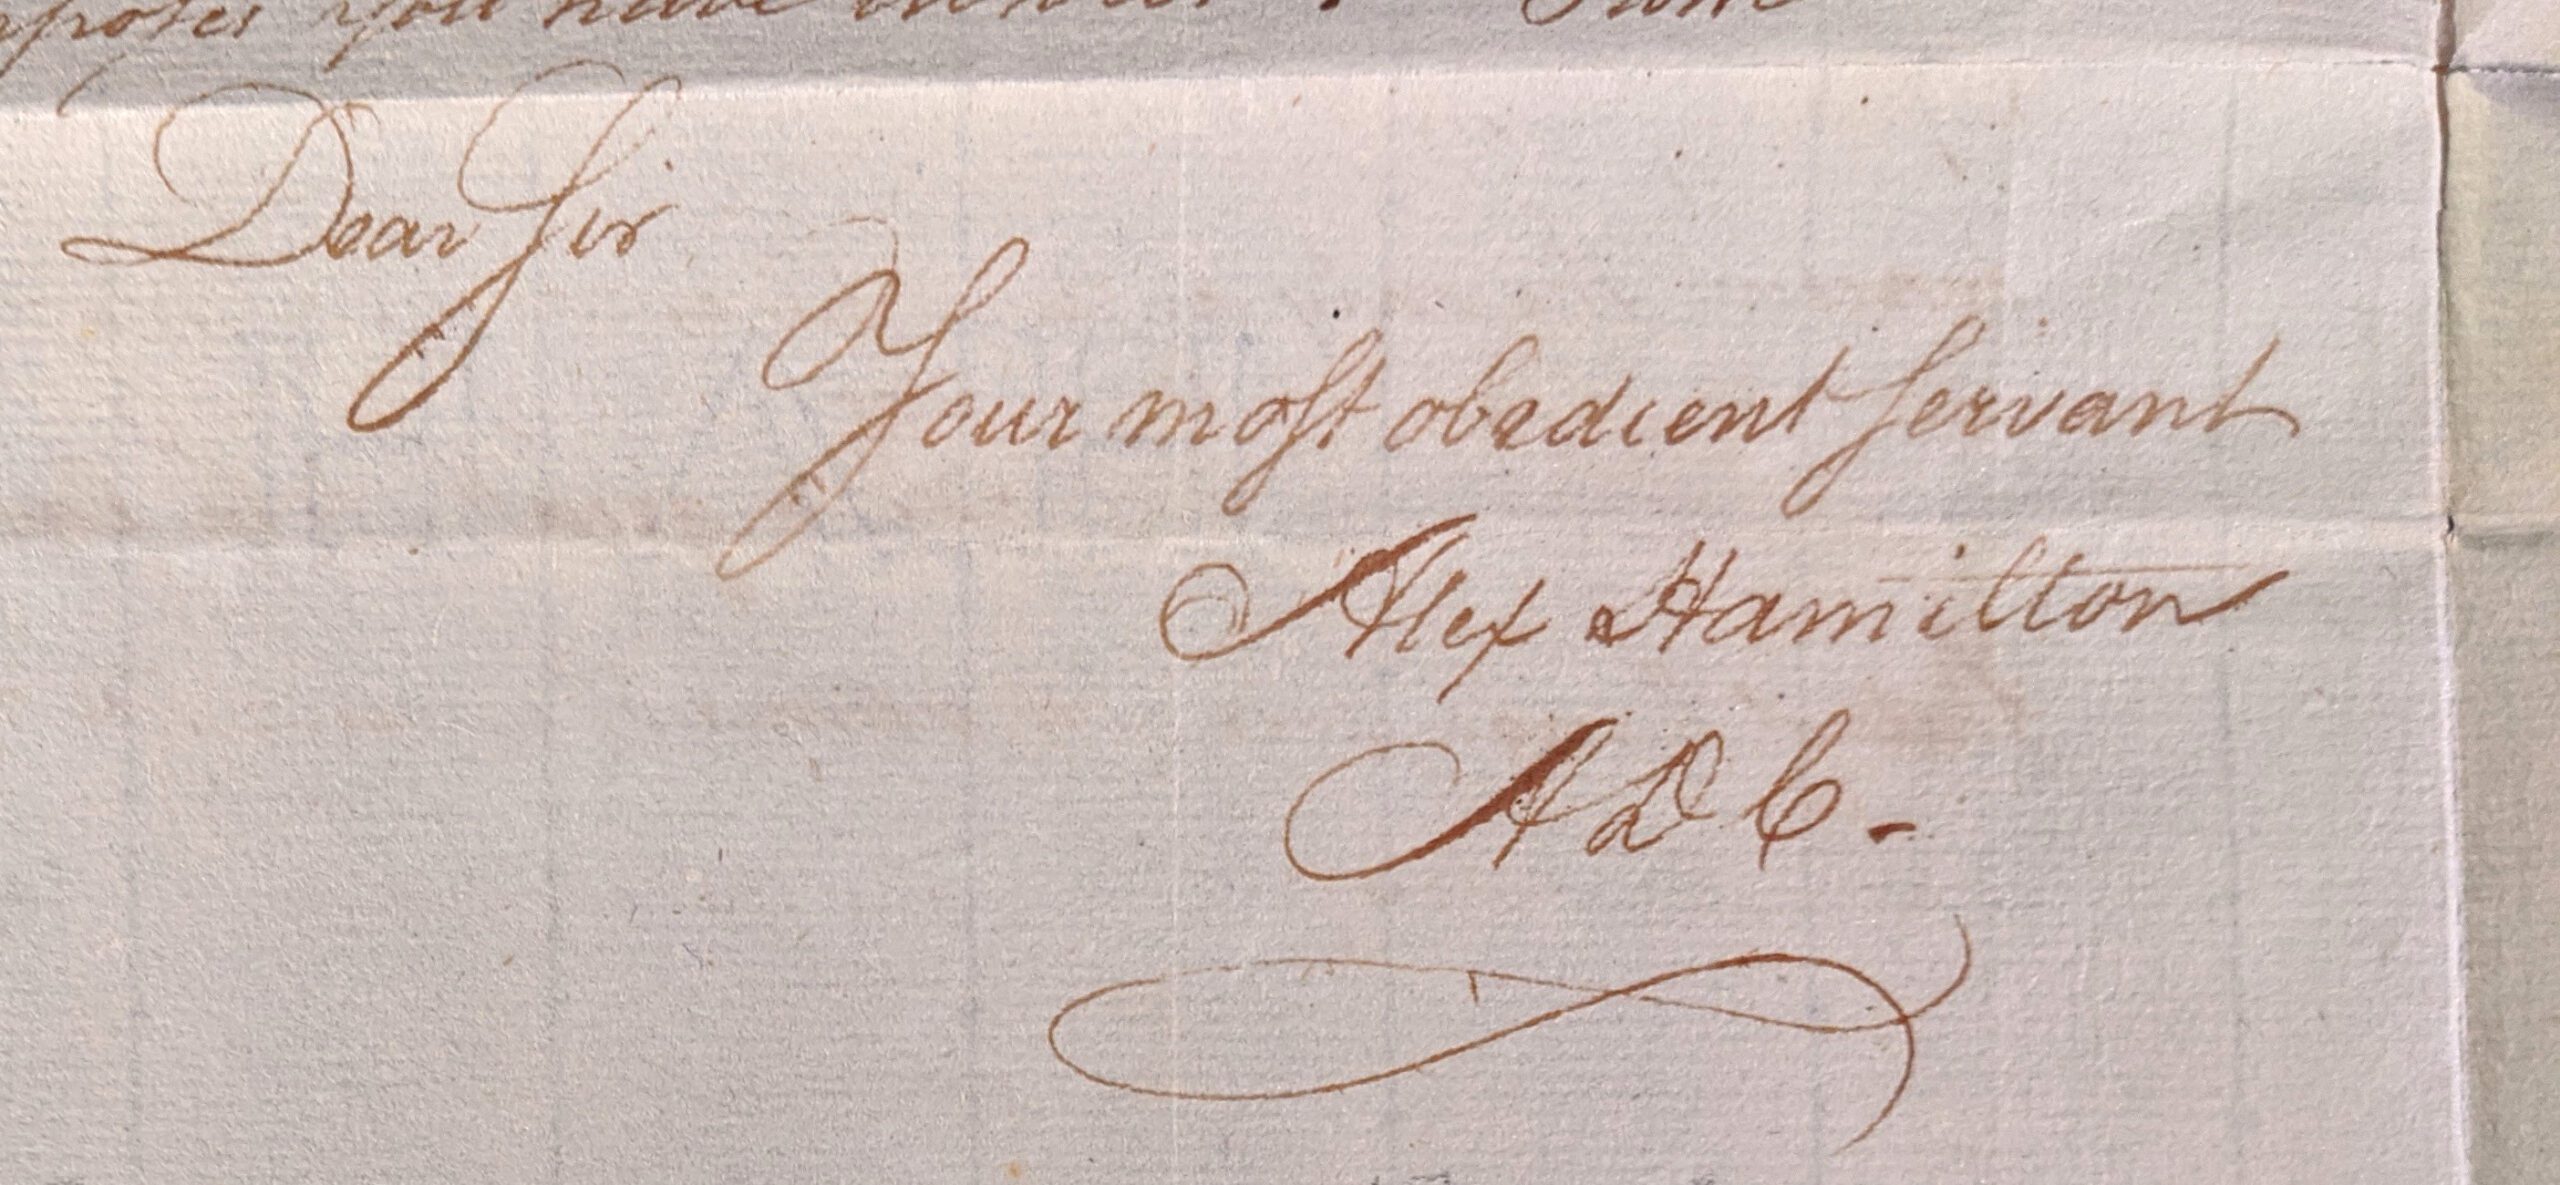 you have
Dear Sir
Your most obedient Servant
Alex Hamilton
ADC -